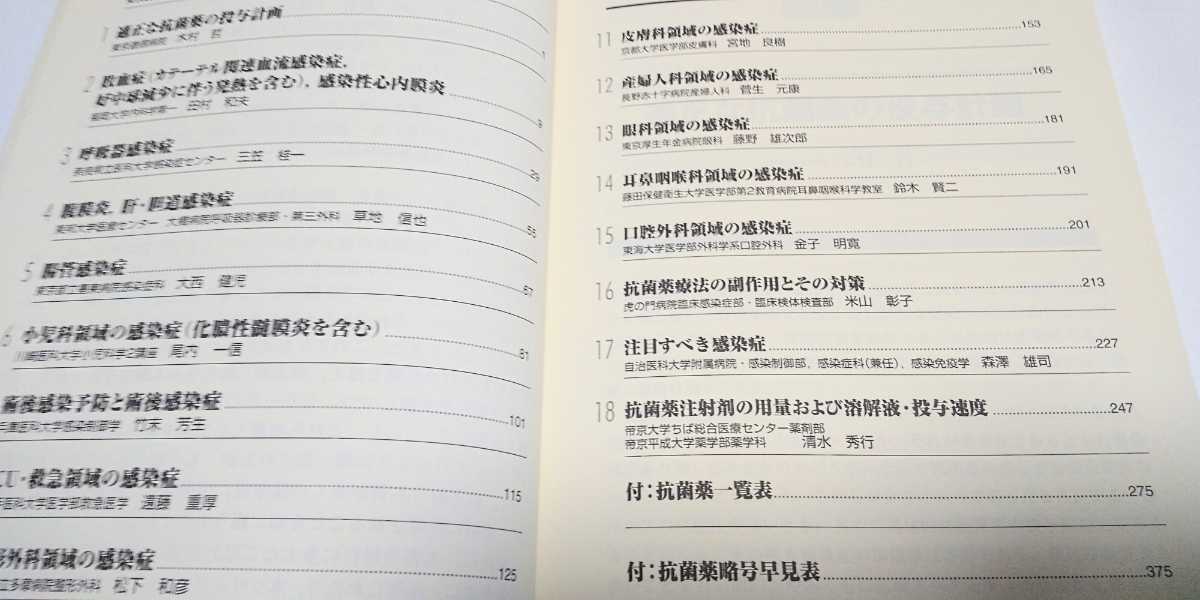 1 適正な抗菌薬の投与計画
木村 哲
1
2 敗血症(カテーテル関連血流感染症,
好中球減少に伴う発熱を含む), 感染性心内膜炎
福岡大学内科学第一 田村 和夫
9
3 呼吸器感染症
奈良県立医科大学感染症センター 三笠 桂一
29
4 腹膜炎, 肝・胆道感染症
東邦大学医療センター 大橋病院呼吸器診療部・第三外科 草地 信也
55
5 腸管感染症
大西 健児
67
6 小児科領域の感染症(化膿性髄膜炎を含む)
川崎医科大学小児科学2講座 尾内 一信
81
術後感染予防と術後感染症
兵庫医科大学感染制御学 竹末 芳生
101
CU・救急領域の感染症
医科大学医学部救急医学 遠藤 重厚
115
形外科領域の感染症
立多摩病院整形外科 松下 和彦
125
11 皮膚科領域の感染症 153
京都大学医学部皮膚科 宮地 良樹
12 産婦人科領域の感染症 165
長野赤十字病院産婦人科 菅生 元康
13 眼科領域の感染症 181
東京厚生年金病院眼科 藤野 雄次郎
14 耳鼻咽喉科領域の感染症 191
藤田保健衛生大学医学部第2教育病院耳鼻咽喉科学教室 鈴木 賢二
15 口腔外科領域の感染症 201
東海大学医学部外科学系口腔外科 金子 明寛
16 抗菌薬療法の副作用とその対策 213
虎の門病院臨床感染症部・臨床検体検査部 米山 彰子
17 注目すべき感染症 227
自治医科大学附属病院・感染制御部, 感染症科(兼任), 感染免疫学 森澤 雄司
18 抗菌薬注射剤の用量および溶解液・投与速度 247
帝京大学ちば総合医療センター薬剤部
帝京平成大学薬学部薬学科 清水 秀行
付：抗菌薬一覧表 275
付：抗菌薬略号早見表 375